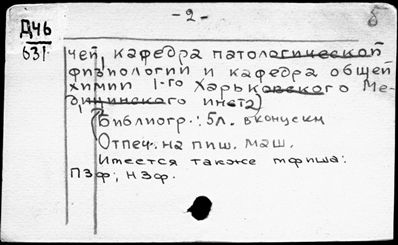 -2-
Б
Дч6
631
чей, кафедра патологической
физиологии и кафедра общей
химии 1-го Харьковского Ме-
дицинского инста)
(Библиогр.: 5л. в конце
Отпеч. на пиш. маш.
Имеется также мфиша:
ПЗф; НЗф.